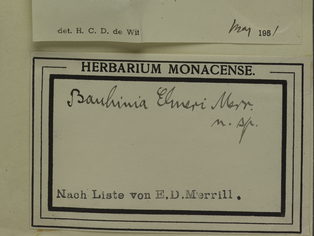 det. H. C. D. de Wit May 1981
HERBARIUM MONACENSE.
Bauhinia Elmeri Merr.
n. sp.
Nach Liste von E.D.Merrill.